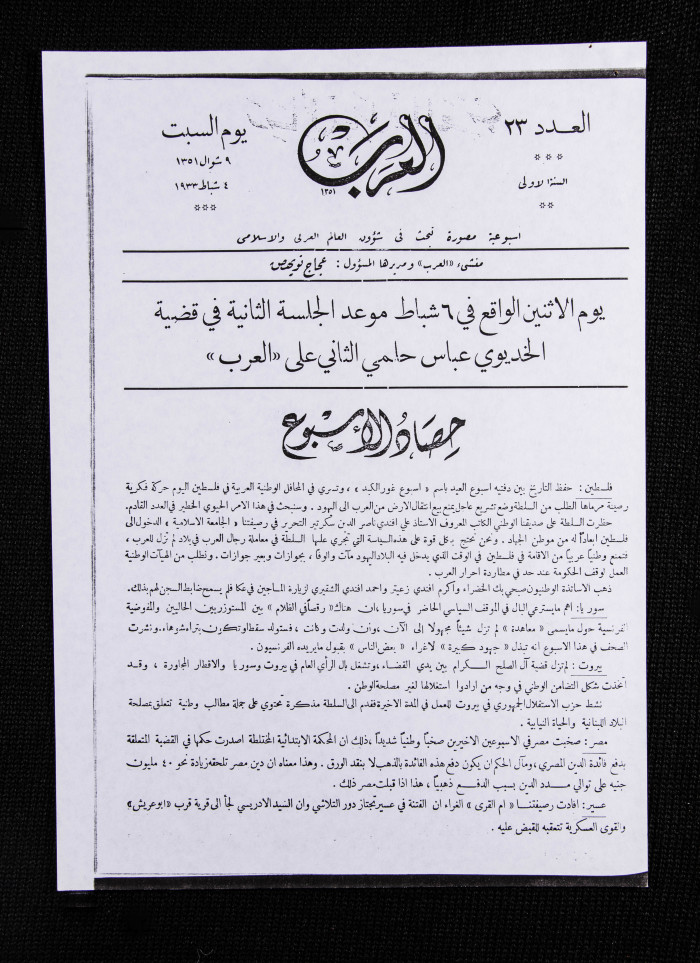 العدد ٢٣
السنة الاولى
العرب
١٣٥١
يوم السبت
٩ شوال ١٣٥١
٤ شباط ١٩٣٣
اسبوعية مصورة تبحث في شؤون العالم العربي والاسلامي
منشىء «العرب» ومديرها المسؤول : عجاج نويهض
يوم الاثنين الواقع في ٦ شباط موعد الجلسة الثانية في قضية
الخديوي عباس حلمي الثاني على «العرب»
حصاد الأسبوع
فلسطين : حفظ التاريخ بين دفتيه اسبوع العيد باسم « اسبوع غور الكبد » ، وتسري في المحافل الوطنية العربية في فلسطين اليوم حركة فكرية
رصينة مرماها الطلب من السلطة وضع تشريع عاجل يمنع بيع انتقال الارض من العرب الى اليهود . وسنبحث في هذا الامر الحيوي الخطير في العدد القادم.
حظرت السلطة على صديقنا الوطني الكاتب المعروف الاستاذ علي افندي ناصر الدين سكرتير التحرير في رصيفتنا « الجامعة الاسلامية » الدخول الى
فلسطين ابعاداً له من موطن الجهاد . ونحن نحتج بكل قوة على هذه السياسة التي تجري عليها السلطة في معاملة رجال العرب في بلاد لم تزل للعرب ،
فتمنع وطنياً عربياً من الاقامة في فلسطين في الوقت الذي يدخل فيه البلاد اليهود مآت وألوفاً ، بجوازات وبغير جوازات . ونطلب من الهيآت الوطنية
العمل لوقف الحكومة عند حد في مطاردة احرار العرب .
ذهب الاساتذة الوطنيون صبحي بك الخضراء واكرم افندي زعيتر واحمد افندي الشقيري لزيارة المساجين في عكا فلم يسمح ضابط السجن لهم بذلك.
سوريا: اهم ما يسترعي البال في الموقف السياسي الحاضر في سوريا ، ان هناك « رقصاً في الظلام » بين المستوزرين الحاليين والمفوضية
الفرنسية حول ما يسمى « معاهدة » لم تزل شيئاً مجهولا إلى الآن ، وان ولدت وكانت ، فستولد سقطا وتكون بتراء شوهاء. ونشرت
الصحف في هذا الاسبوع انه تبذل « جهود كبيرة » لاغراء « بعض الناس » بقبول ما يريده الفرنسيون .
بيروت : لم تزل قضية آل الصلح الكرام بين يدي القضاء ، وتشغل بال الرأي العام في بيروت وسوريا والاقطار المجاورة ، وقد
اتخذت شكل التضامن الوطني في وجه من ارادوا استغلالها لغير مصلحة الوطن .
نشط حزب الاستقلال الجمهوري في بيروت للعمل في المدة الاخيرة فقدم الى السلطة مذكرة تحتوي على جملة مطالب وطنية تتعلق بمصلحة
البلاد اللبنانية والحياة النيابية .
مصر : صخبت مصر في الاسبوعين الاخيرين صخباً وطنياً شديداً ، ذلك ان المحكمة الابتدائية المختلطة اصدرت حكمها في القضية المتعلقة
بدفع فائدة الدين المصري ، ومآل الحكم ان يكون دفع هذه الفائدة بالذهب لا بنقد الورق . وهذا معناه ان دين مصر تلحقه زيادة نحو ٤٠ مليون
جنيه على توالي مدد الدين بسبب الدفع ذهبياً ، هذا اذا قبلت مصر ذلك .
عسير : افادت رصيفتنا « ام القرى » الغراء ان الفتنة في عسير تجتاز دور التلاشي وان السيد الادريسي لجأ الى قرية قرب «ابو عريش»
والقوى العسكرية تتعقبه للقبض عليه .